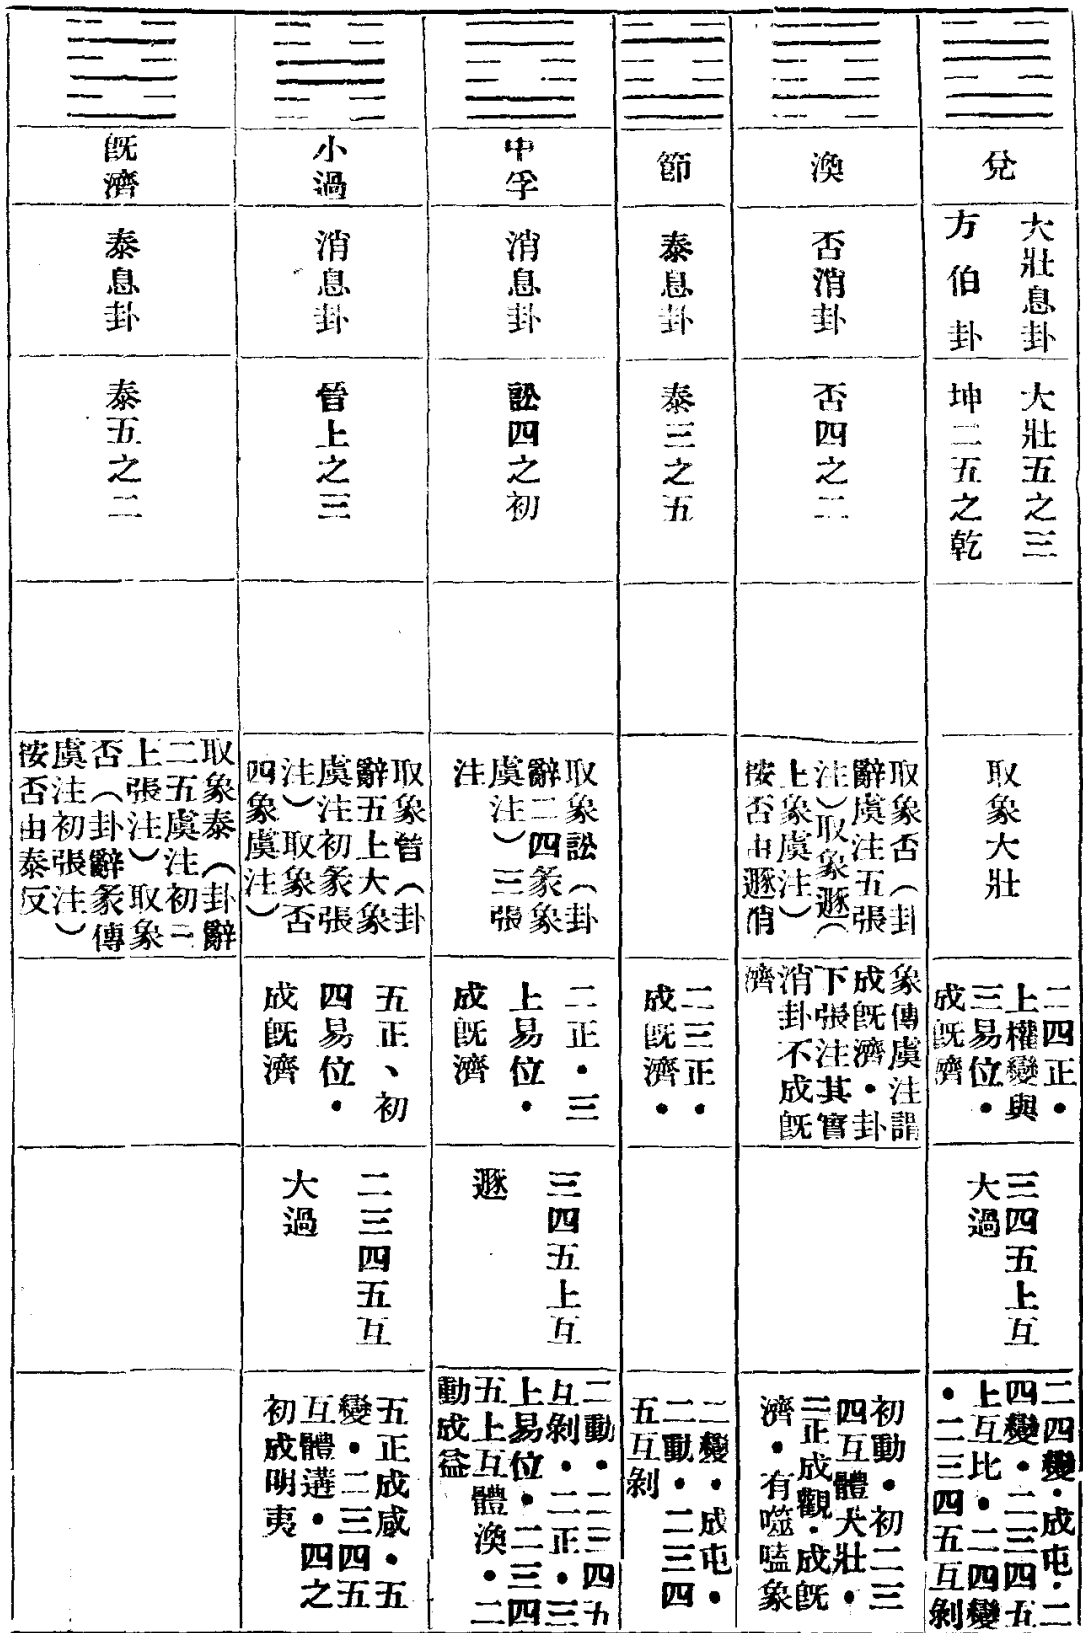 兌
大壯息卦
方伯卦
大壯五之三
坤二五之乾
取象大壯
二四正·
上權變與
三易位·
成旣濟
三四五上互
大過
二四變·成屯·二
四變·二三四五
上互比·二四變
·二三四五互剝
渙
否消卦
否四之二
取象否（卦
辭虞注五張
注）取象遯（
上象虞注）
按否由遯消
象傳虞注謂
成旣濟·卦
下張注其實
消卦不成旣
濟
初動·初二三
四互體大壯·
二正成觀·成旣
濟·有噬嗑象
節
泰息卦
泰三之五
二三正·
成旣濟·
二變·成屯·
二動·二三四
五互剝
中孚
消息卦
訟四之初
取象訟（卦
辭二四彖象
虞注）三張
注
二正·三
上易位·
成旣濟
三四五上互
遯
二動·二三四五
互剝·二正·三
上易位·二三四
五上互體渙·二
動成益
小過
消息卦
晉上之三
取象晉（卦
辭五上大象
虞注初彖張
注）取象否
四象虞注）
五正、初
四易位·
成旣濟
二三四五互
大過
五正成咸·五
變·二三四五
互體遘·四之
初成明夷
旣濟
泰息卦
泰五之二
取象泰（卦辭
二五虞注初二
上張注）取象
否（卦辭彖傳
虞注初張注）
按否由泰反